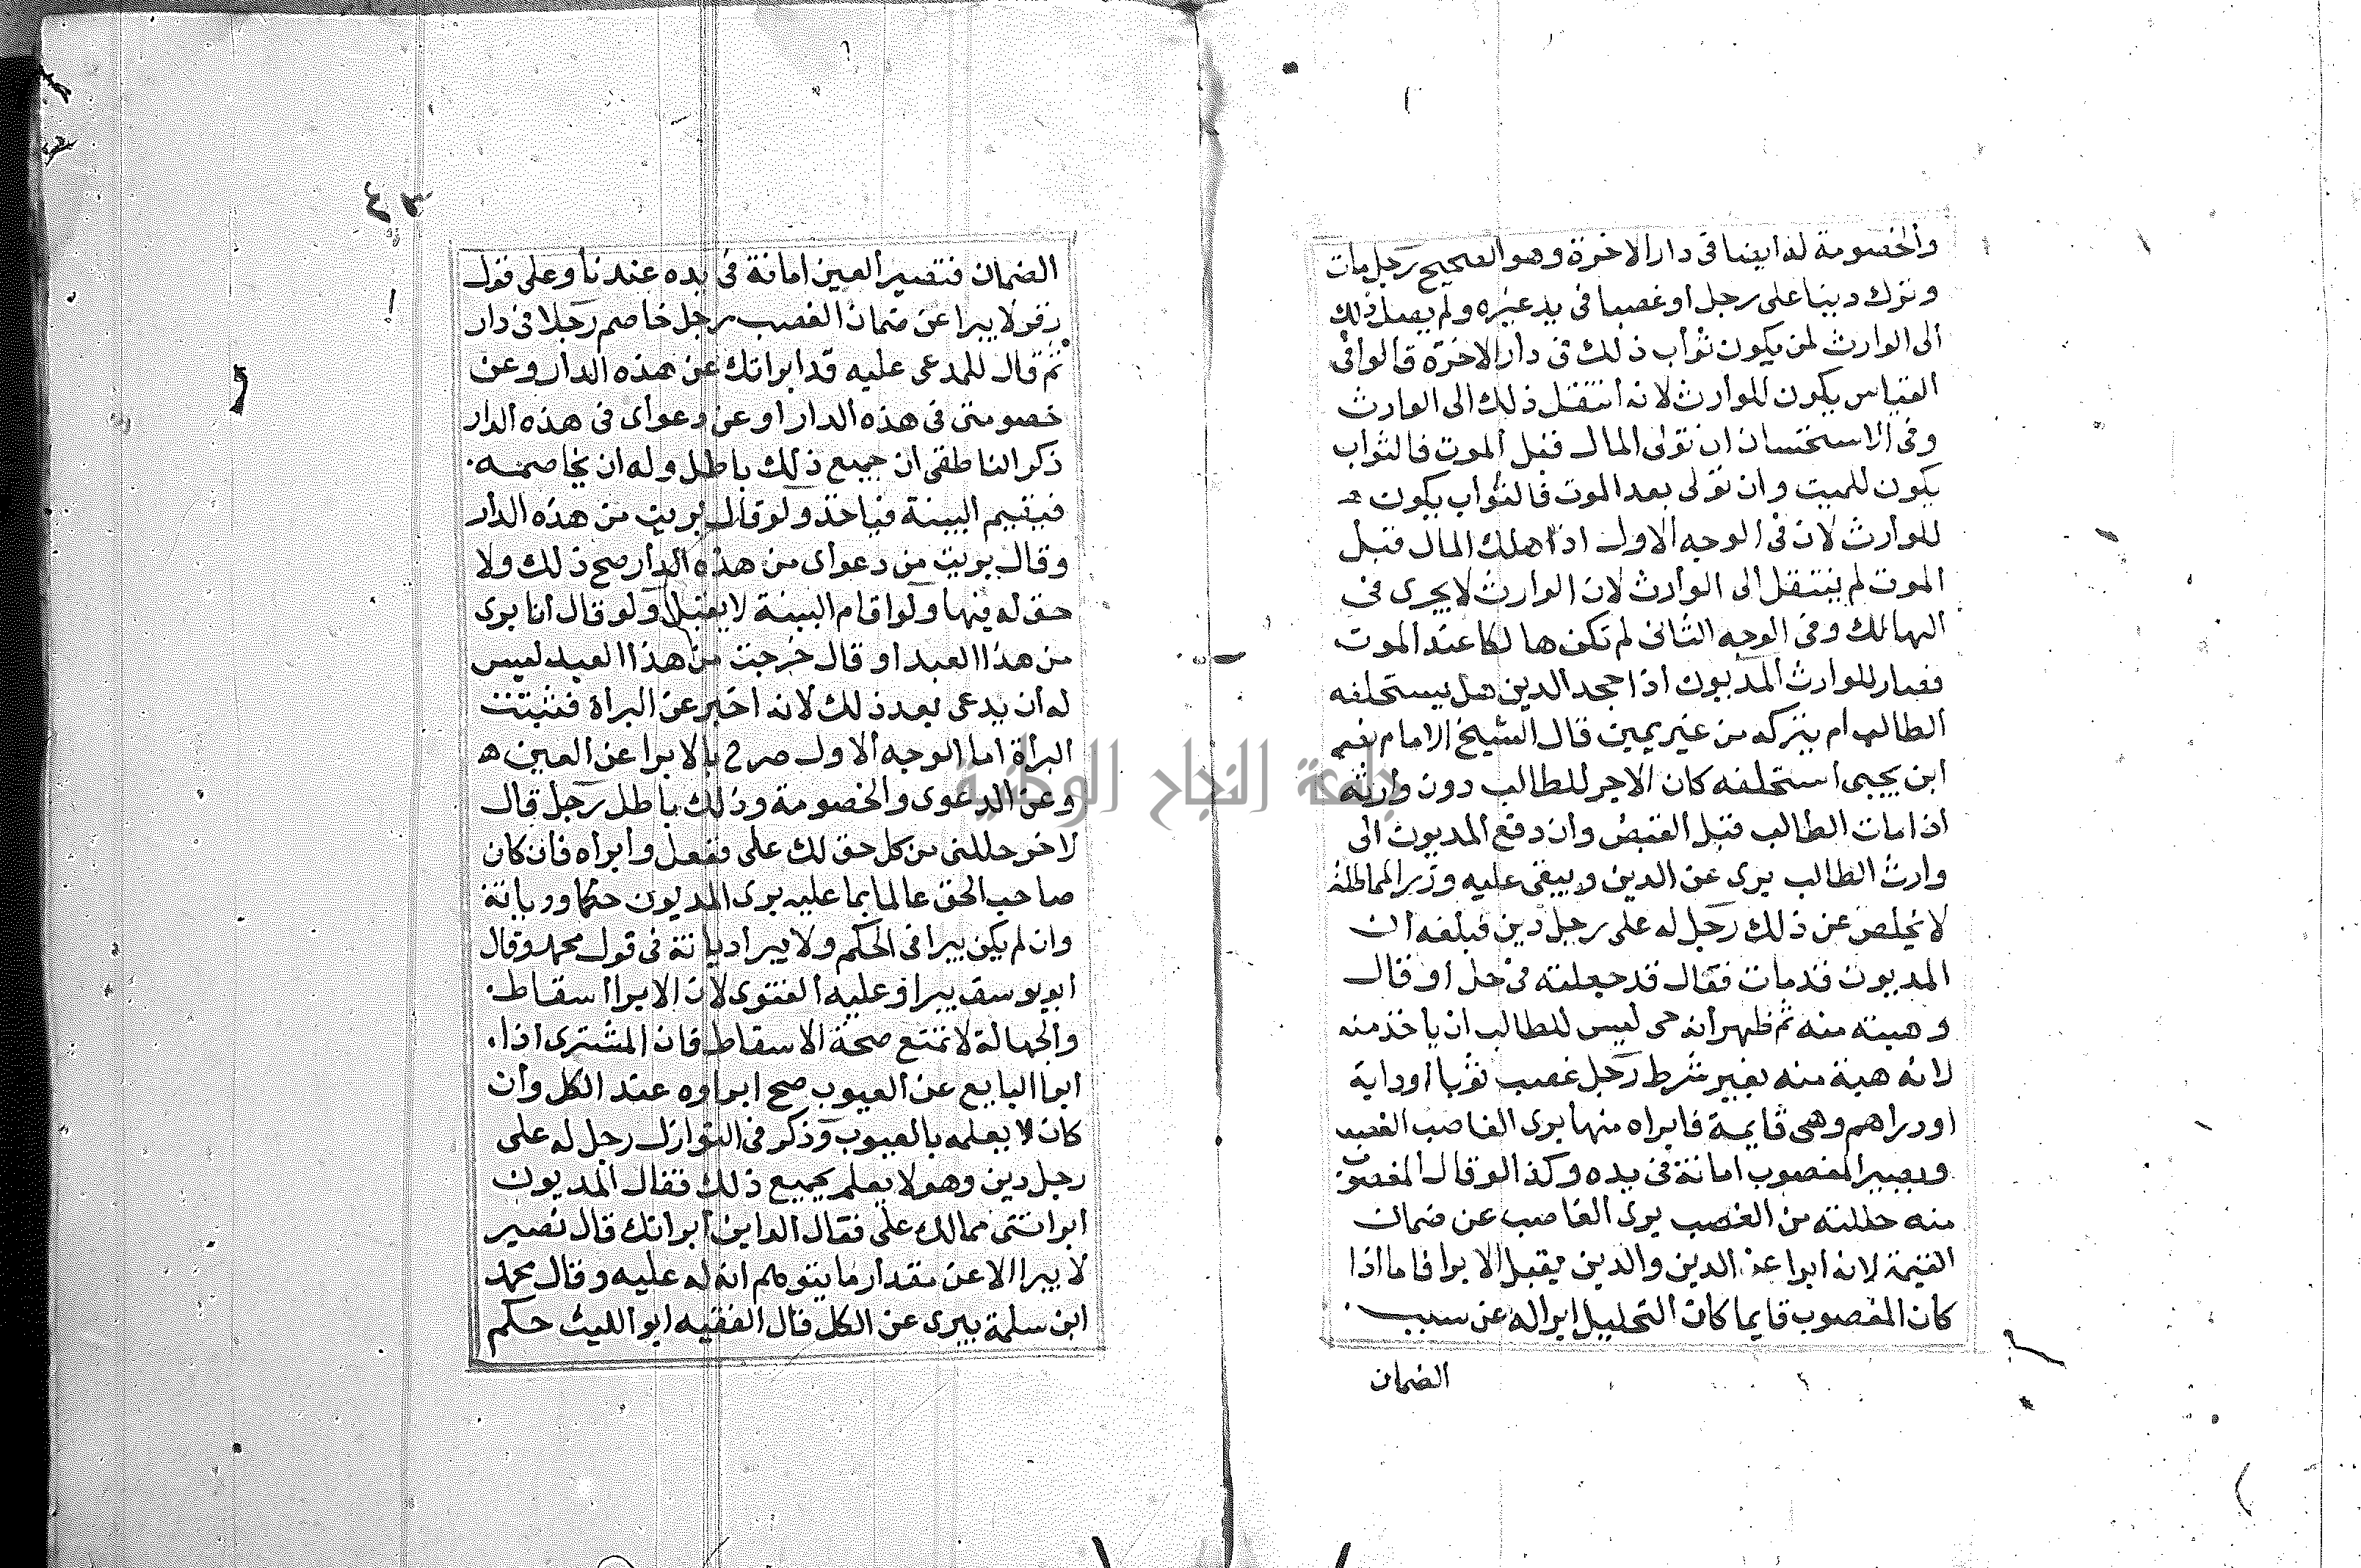 والخصومة له ايضا فى دار الاخرة وهو الصحيح رجل مات
وترك دينا على رجل او غصبا فى يد غيره ولم يصل ذلك
الى الوارث لمن يكون ثواب ذلك فى دار الاخرة قالوا فى
القياس يكون للوارث لانه انتقل ذلك الى الوارث
وفى الاستحسان ان توى المال قبل الموت فالثواب
يكون للميت وان توى بعد الموت فالثواب يكون
للوارث لان فى الوجه الاول اذا هلك المال قبل
الموت لم ينتقل الى الوارث لان الوارث لا يجرى فى
الهالك وفى الوجه الثانى لم تكن هالكا عند الموت
فصار للوارث المديون اذا جحد الدين هل يستحلفه
الطالب ام يتركه من غير يمين قال الشيخ الامام
ابن يحيى استحلفه كان الاجر للطالب دون وارثه
اذا مات الطالب قبل القبض وان دفع المديون الى
وارث الطالب برى عن الدين ويبقى عليه وزر المماطلة
لا يخلص عن ذلك رجل له على رجل دين فبلغه ان
المديون قد مات فقال قد جعلته فى حل او قال
وهبته منه ثم ظهر انه حى ليس للطالب ان ياخذ منه
لانه هبة منه بغير شرط رجل غصب ثوبا او دابة
او دراهم وهى قايمة فابراه منها برى الغاصب الغصب
ويصير المغصوب امانة فى يده وكذا لو قال المغصوب
منه حللته من الغصب برى الغاصب عن ضمان
القيمة لانه ابرا عن الدين والدين يقبل الابرا فاما اذا
كان المغصوب قايما كان التحليل ابرا له عن سبب
الضمان
الضمان فتصير العين امانة فى يده عندنا وعلى قول
زفر لا يبرا عن ضمان الغصب رجل خاصم رجلا فى دار
ثم قال للمدعى عليه قد ابراتك عن هذه الدار وعن
خصومتى فى هذه الدار او عن دعواى فى هذه الدار
ذكر الناطفى ان جميع ذلك باطل وله ان يخاصمه
فيقيم البينة فياخذ ولو قال بريت من هذه الدار
وقال بريت من دعواى من هذه الدار صح ذلك ولا
حق له فيها ولو اقام البينة لا يقبل ولو قال انا برى
من هذا العبد او قال خرجت من هذا العبد ليس
له ان يدعى بعد ذلك لانه اخبر عن البراة فثبتت
البرأة اما الوجه الاول صرح بالابرا عن العين
وعن الدعوى والخصومة وذلك باطل رجل قال
لاخر حللنى من كل حق لك على ففعل وابراه فان كان
صاحب الحق عالما بما عليه برى المديون حكما وديانة
وان لم يكن يبرا فى الحكم ولا يبرا ديانة فى قول محمد وقال
ابو يوسف يبرا وعليه الفتوى لان الابرا اسقاط
والجهالة لا تمنع صحة الاسقاط فان المشترى اذا
ابرا البايع عن العيوب صح ابراوه عند الكل وان
كان لا يعلمه بالعيوب وذكر فى النوازل رجل له على
رجل دين وهو لا يعلم بجميع ذلك فقال المديون
ابراتنى ممالك على فقال الداين ابراتك قال نصير
لا يبرا الا عن مقدار ما يتوهم انه له عليه وقال محمد
ابن سلمة يبرى عن الكل قال الفقيه ابو الليث حكم
جامعة النجاح الوطنية